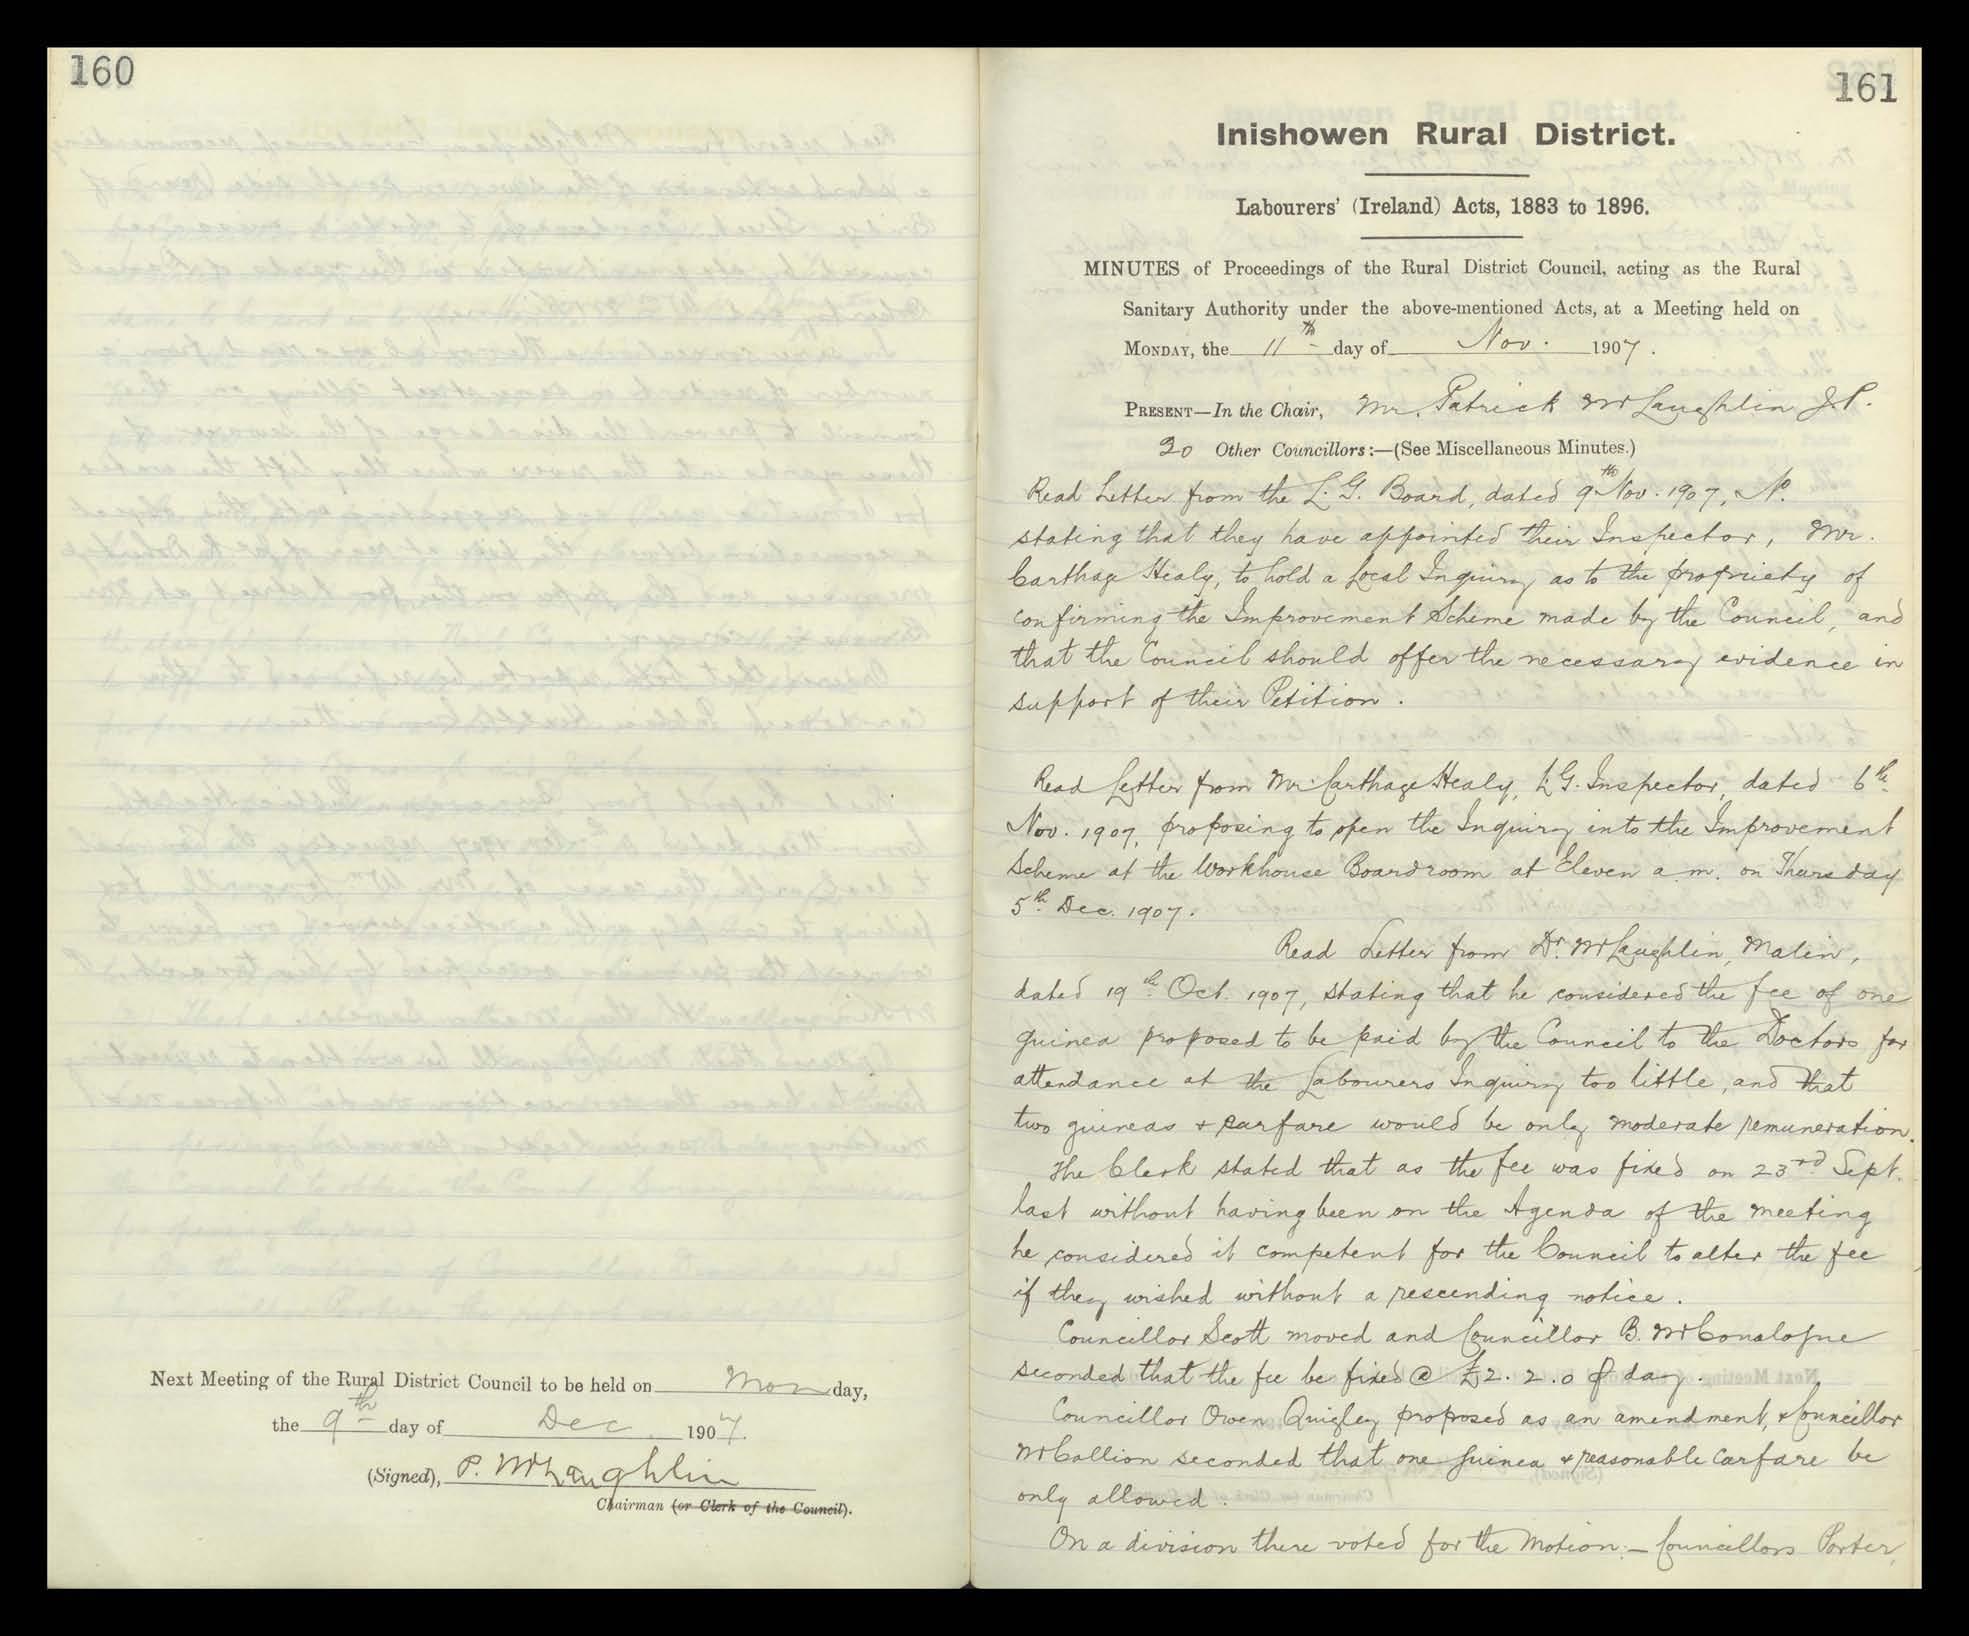 160
Next Meeting of the Rural District Council to be held on Monday,
the 9th day of Dec 1907.
(Signed), P. McLaughlin
Chairman (or Clerk of the Council).
161
Inishowen Rural District.
Labourers' (Ireland) Acts, 1883 to 1896.
MINUTES of Proceedings of the Rural District Council, acting as the Rural
Sanitary Authority under the above-mentioned Acts, at a Meeting held on
MONDAY, the 11th day of Nov. 1907.
PRESENT—In the Chair, Mr. Patrick McLaughlin J.P.
20 Other Councillors:—(See Miscellaneous Minutes.)
Read Letter from the L. G. Board, dated 9th Nov. 1907, No.
stating that they have appointed their Inspector, Mr.
Carthage Healy, to hold a Local Inquiry as to the propriety of
confirming the Improvement Scheme made by the Council, and
that the Council should offer the necessary evidence in
support of their Petition.
Read Letter from Mr Carthage Healy, L.G. Inspector, dated 6th
Nov. 1907, proposing to open the Inquiry into the Improvement
Scheme at the Workhouse Boardroom at Eleven a.m. on Thursday
5th Dec. 1907.
Read Letter from Dr. McLaughlin, Malin,
dated 19th Oct. 1907, stating that he considered the fee of one
guinea proposed to be paid by the Council to the Doctors for
attendance at the Labourers Inquiry too little, and that
two guineas + carfare would be only moderate remuneration.
The Clerk stated that as the fee was fixed on 23rd Sept.
last without having been on the Agenda of the meeting
he considered it competent for the Council to alter the fee
if they wished without a rescending notice.
Councillor Scott moved and Councillor B. McConalogue
seconded that the fee be fixed @ £2.2.0 day.
Councillor Owen Quigley proposed as an amendment, + Councillor
McCallion seconded that one guinea + reasonable carfare be
only allowed.
On a division there voted for the Motion:— Councillors Porter,